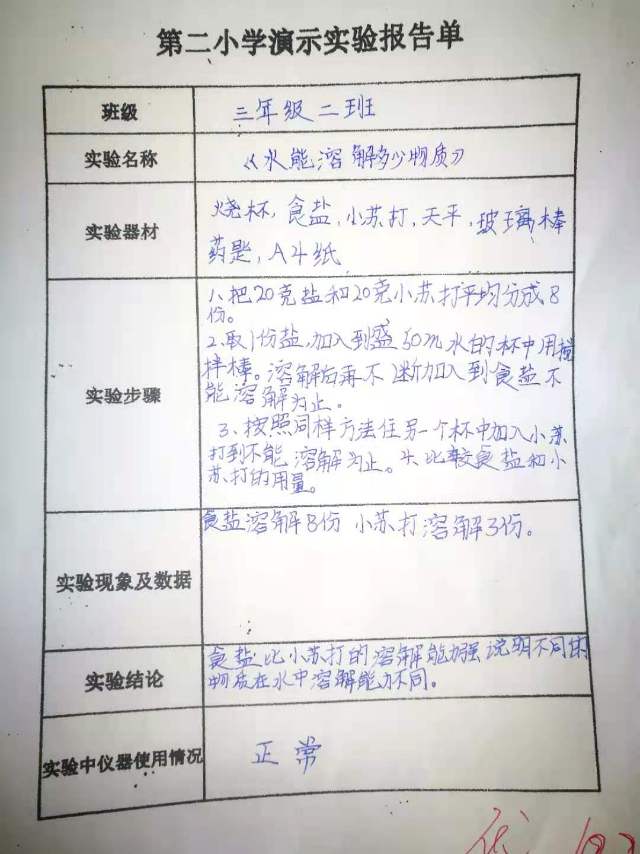 第二小学演示实验报告单
班级
三年级二班
实验名称
《水能溶解多少物质》
实验器材
烧杯，食盐，小苏打，天平，玻璃棒
药匙，A4纸
实验步骤
1、把20克盐和20克小苏打平均分成8
份。
2.取1份盐，加入到盛50m水的杯中用搅
拌棒。溶解后再不断加入到食盐不
能溶解为止。
3、按照同样方法往另一个杯中加入小苏
打到不能溶解为止。4、比较食盐和小
苏打的用量。
实验现象及数据
食盐溶解8份 小苏打溶解3份。
实验结论
食盐比小苏打的溶解能力强说明不同的
物质在水中溶解能力不同。
实验中仪器使用情况
正常
优